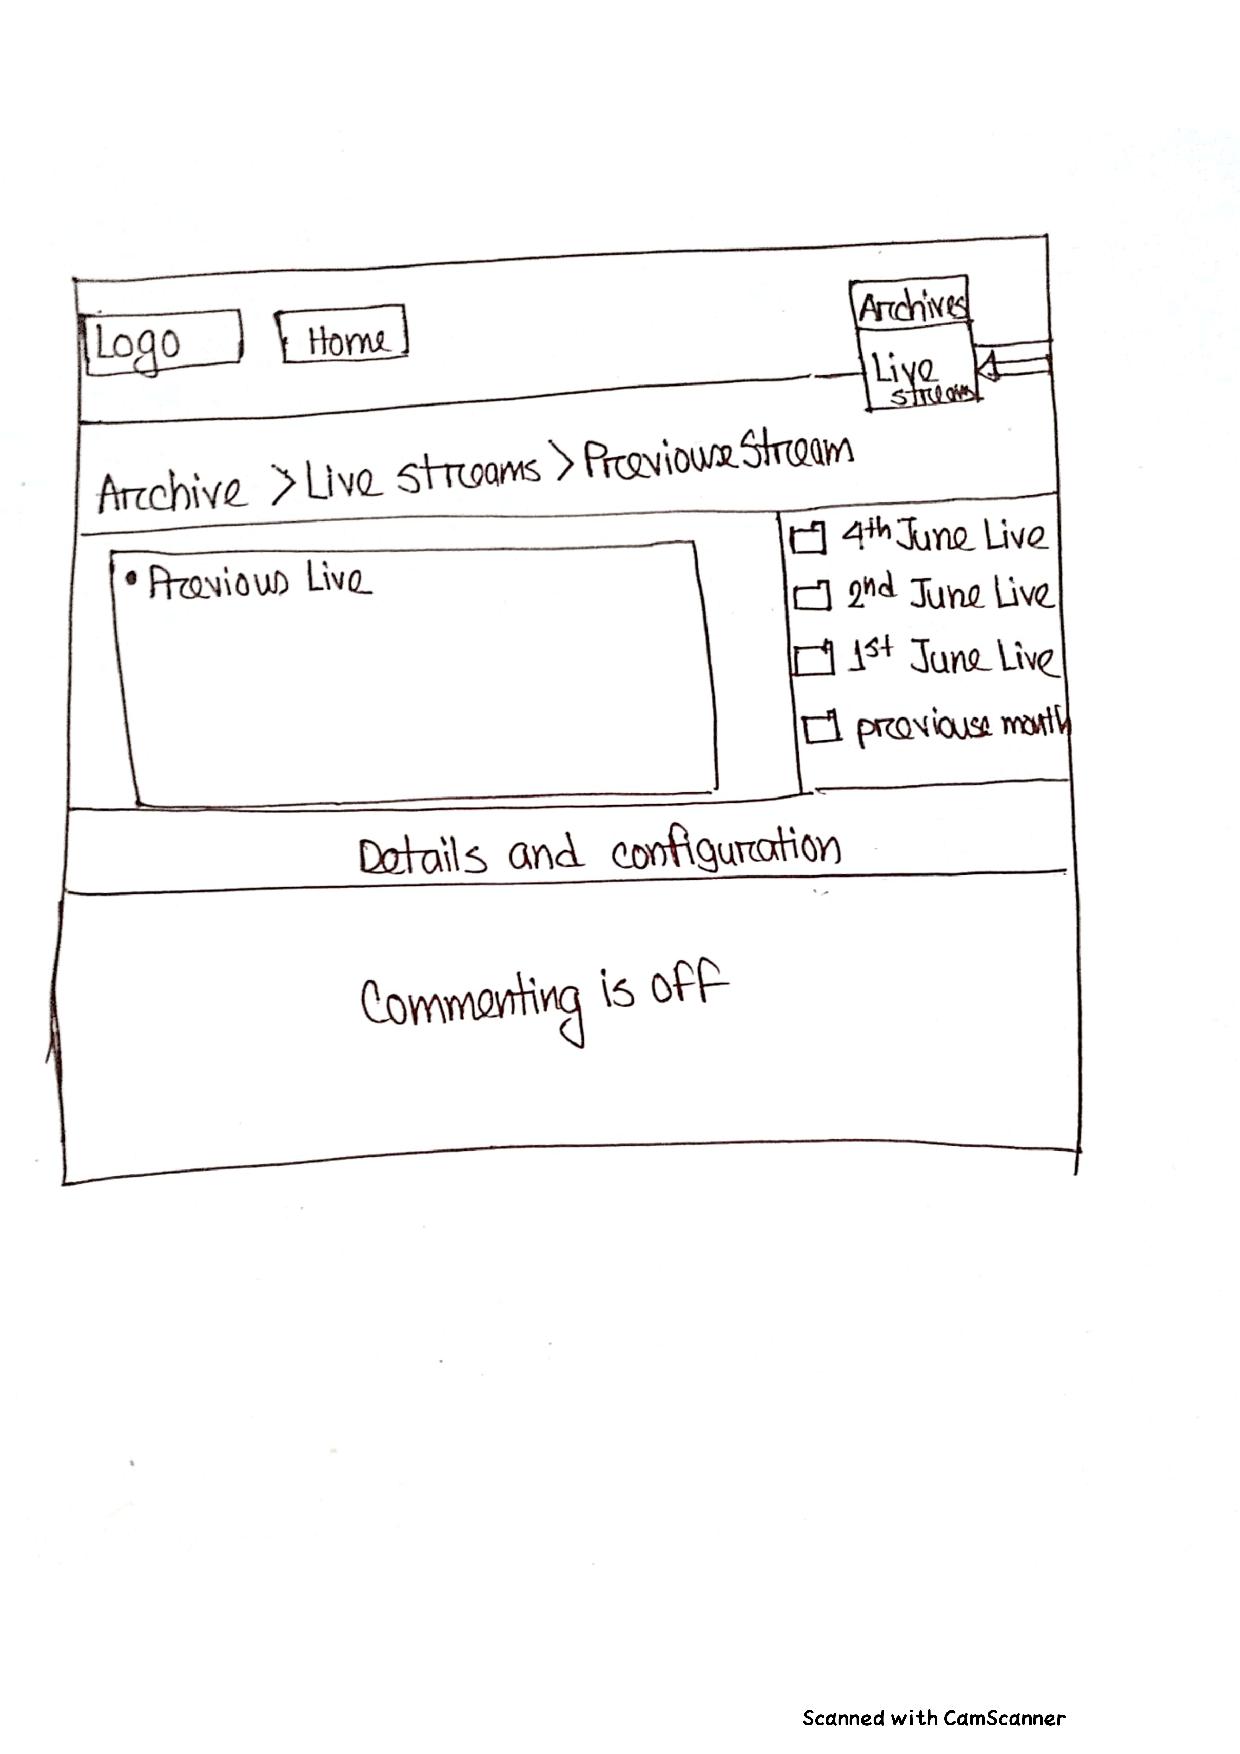 Logo
Home
Archives
Live
stream
Archive > Live streams > Previouse Stream
• Previous Live
4th June Live
2nd June Live
1st June Live
previouse month
Details and configuration
Commenting is off
Scanned with CamScanner